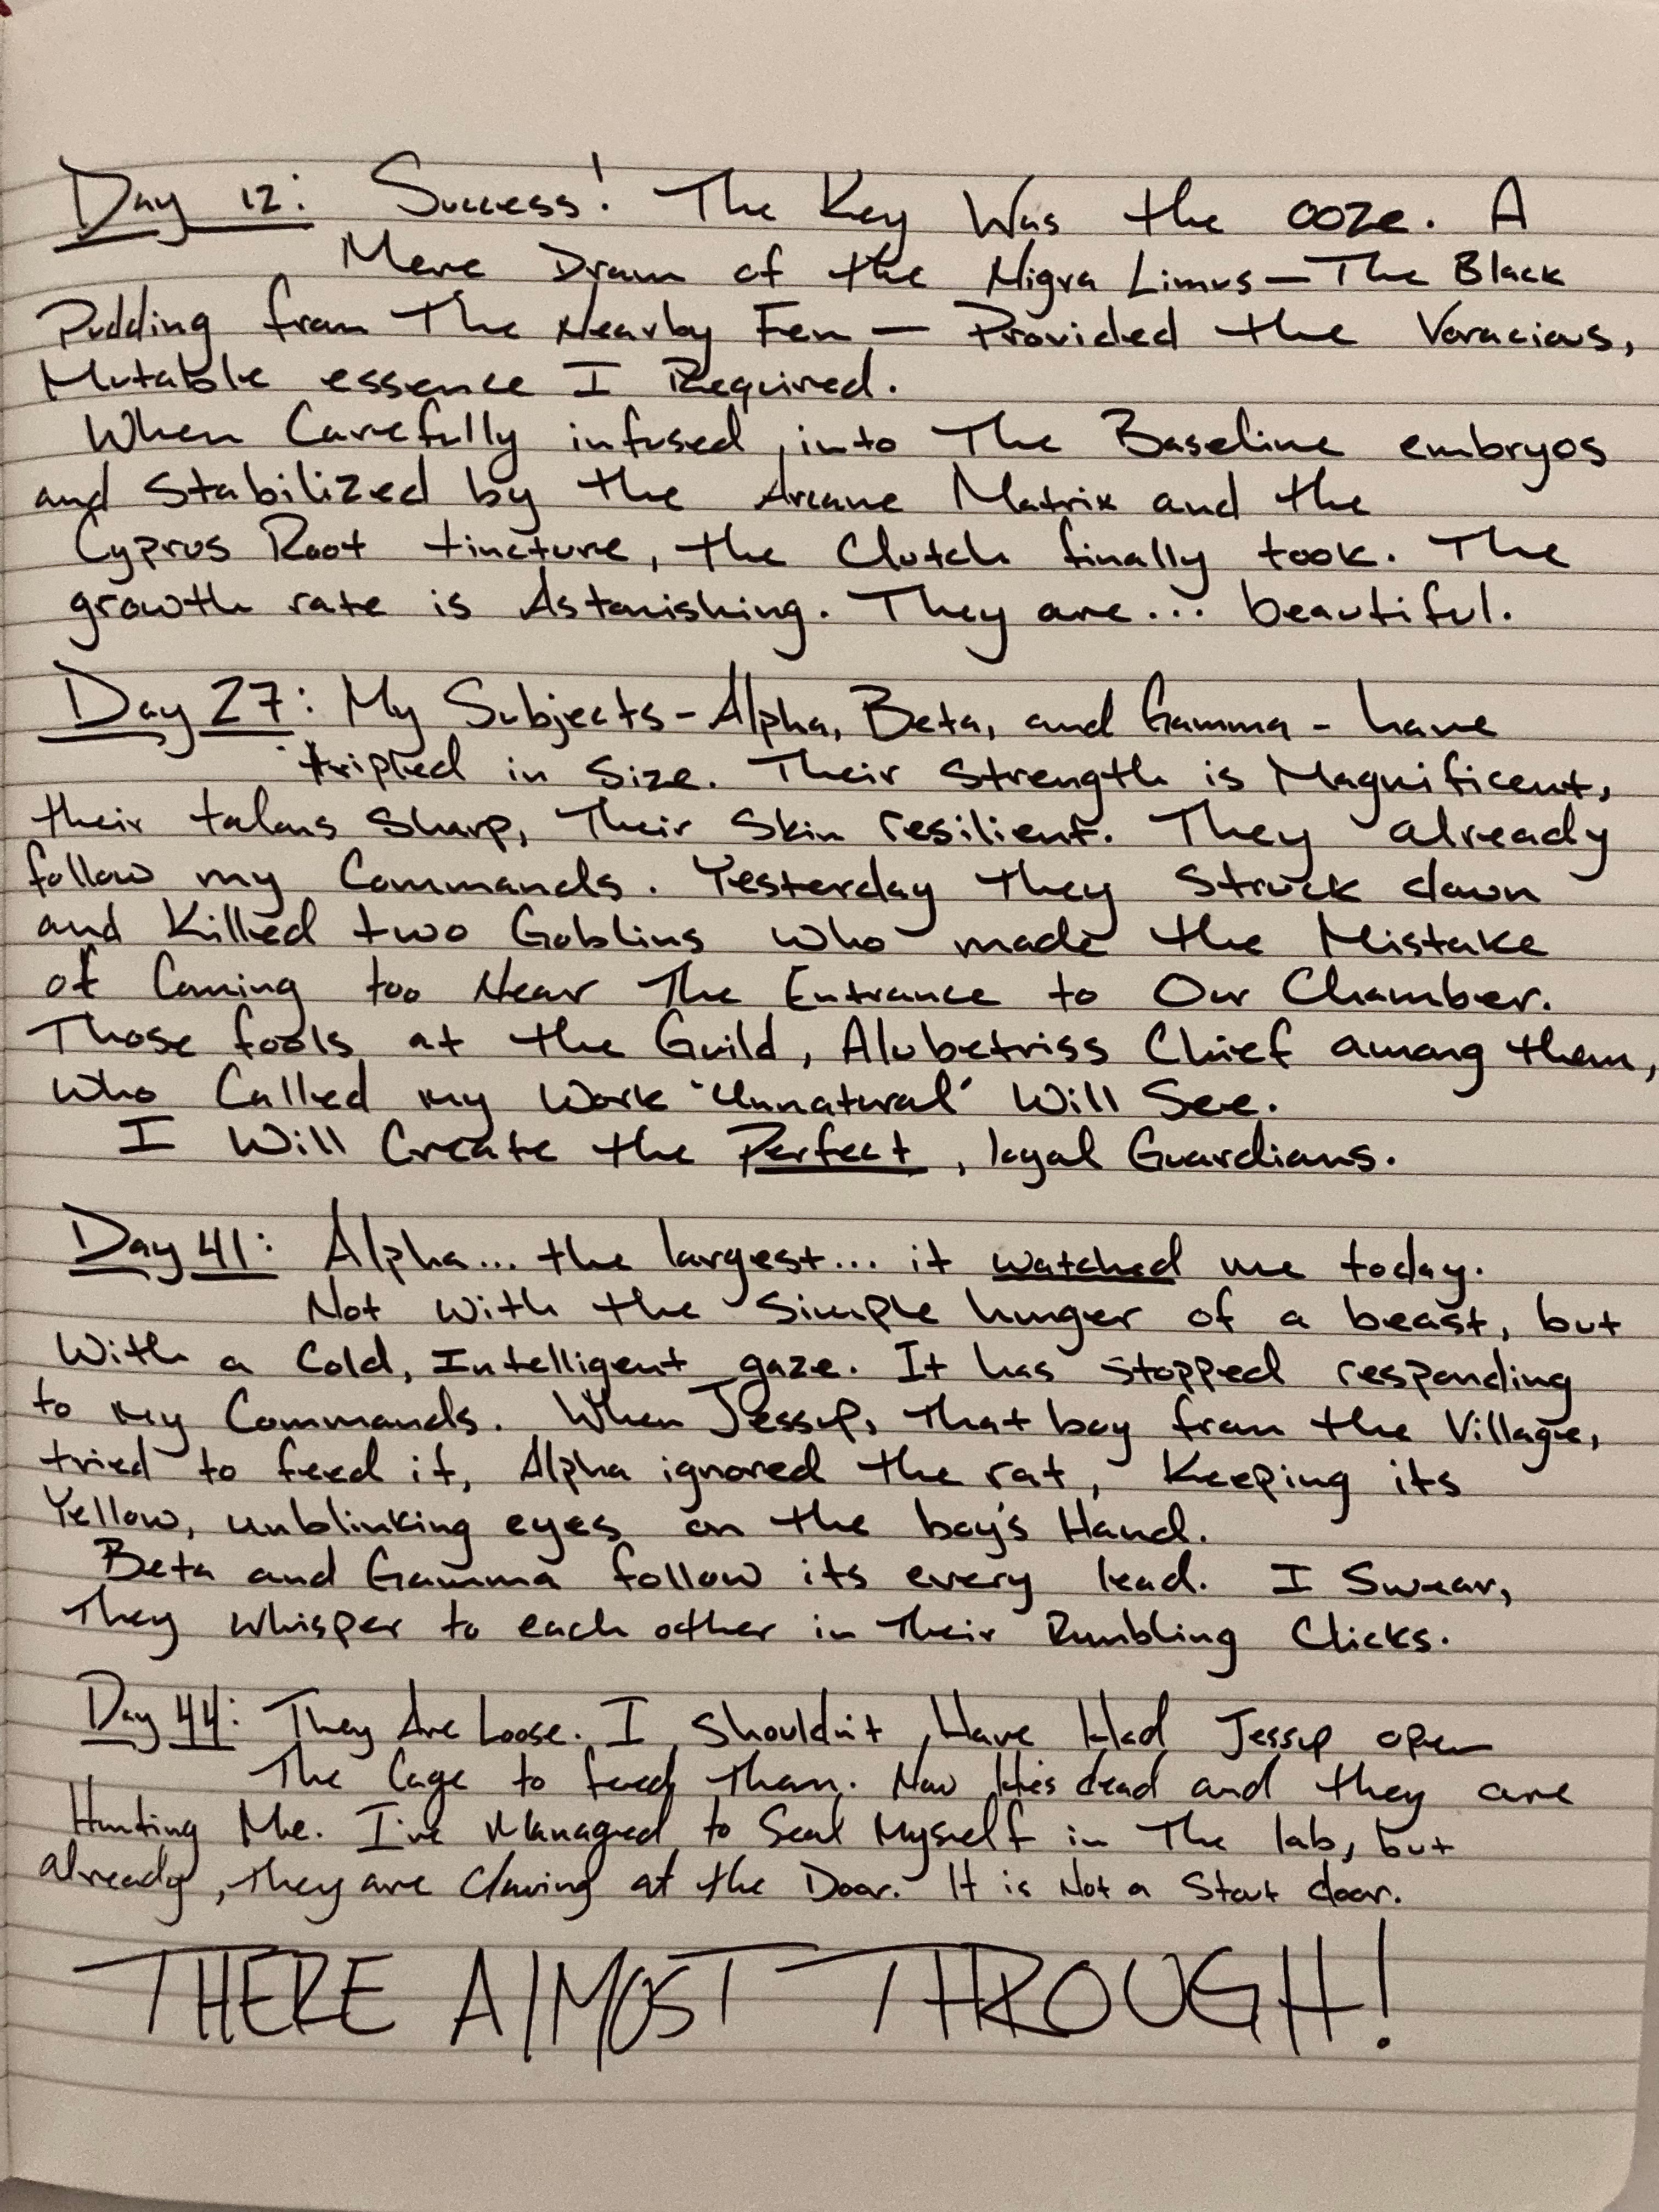 Day 12: Success! The Key Was the ooze. A
Mere Dram of the Nigra Limus—The Black
Pudding from The Nearby Fen — Provided the Voracious,
Mutable essence I Required.
When Carefully infused into The Baseline embryos
and Stabilized by the Arcane Matrix and the
Cyprus Root tincture, the Clutch finally took. The
growth rate is Astonishing. They are... beautiful.
Day 27: My Subjects-Alpha, Beta, and Gamma - have
tripled in Size. Their Strength is Magnificent,
their talons Sharp, Their Skin resilient. They already
follow my Commands. Yesterday They Struck down
and Killed two Goblins who made the Mistake
of Coming too Near The Entrance to Our Chamber.
Those fools at the Guild, Alubetriss Chief among them,
who Called my Work "Unnatural" Will See.
I Will Create the Perfect, loyal Guardians.
Day 41: Alpha... the largest... it watched me today.
Not With the Simple hunger of a beast, but
With a Cold, Intelligent gaze. It has stopped responding
to my Commands. When Jessup, That boy from the Village,
tried to feed it, Alpha ignored the rat, Keeping its
Yellow, unblinking eyes on the boy's Hand.
Beta and Gamma follow its every lead. I Swear,
They whisper to each other in Their Rumbling Clicks.
Day 44: They Are Loose. I Shouldn't Have Had Jessup open
The Cage to feed Them. Now He's dead and they are
Hunting Me. I've Managed to Seal Myself in The lab, but
already, They are Clawing at the Door. It is Not a Stout door.
THERE AlMOST THROUGH!